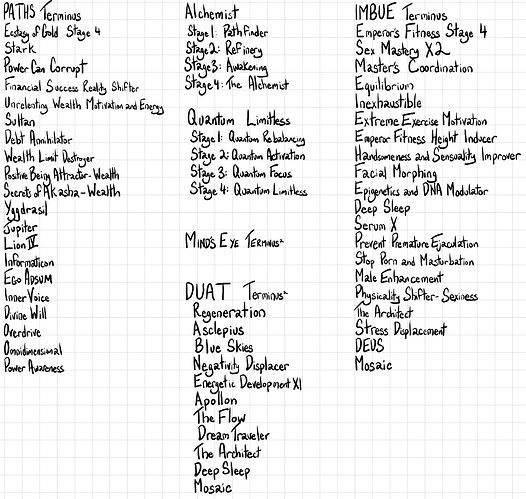 PATHS Terminus
Ecstasy of Gold Stage 4
Stark
Power Can Corrupt
Financial Success Reality Shifter
Unrelenting Wealth Motivation and Energy
Sultan
Debt Annihilator
Wealth Limit Destroyer
Positive Being Attractor-Wealth
Secrets of Akasha-Wealth
Yggdrasil
Jupiter
Lion IV
Informaticon
Ego Adsum
Inner Voice
Divine Will
Overdrive
Omnidimensional
Power Awareness
Alchemist
Stage 1: Pathfinder
Stage 2: Refinery
Stage 3: Awakening
Stage 4: The Alchemist
Quantum Limitless
Stage 1: Quantum Rebalancing
Stage 2: Quantum Activation
Stage 3: Quantum Focus
Stage 4: Quantum Limitless
Mind's Eye Terminus²
DUAT Terminus²
Regeneration
Asclepius
Blue Skies
Negativity Displacer
Energetic Development XI
Apollon
The Flow
Dream Traveler
The Architect
Deep Sleep
Mosaic
IMBUE Terminus
Emperor's Fitness Stage 4
Sex Mastery X2
Master's Coordination
Equilibrium
Inexhaustible
Extreme Exercise Motivation
Emperor Fitness Height Inducer
Handsomeness and Sensuality Improver
Facial Morphing
Epigenetics and DNA Modulator
Deep Sleep
Serum X
Prevent Premature Ejaculation
Stop Porn and Masturbation
Male Enhancement
Physicality Shifter-Sexiness
The Architect
Stress Displacement
DEUS
Mosaic